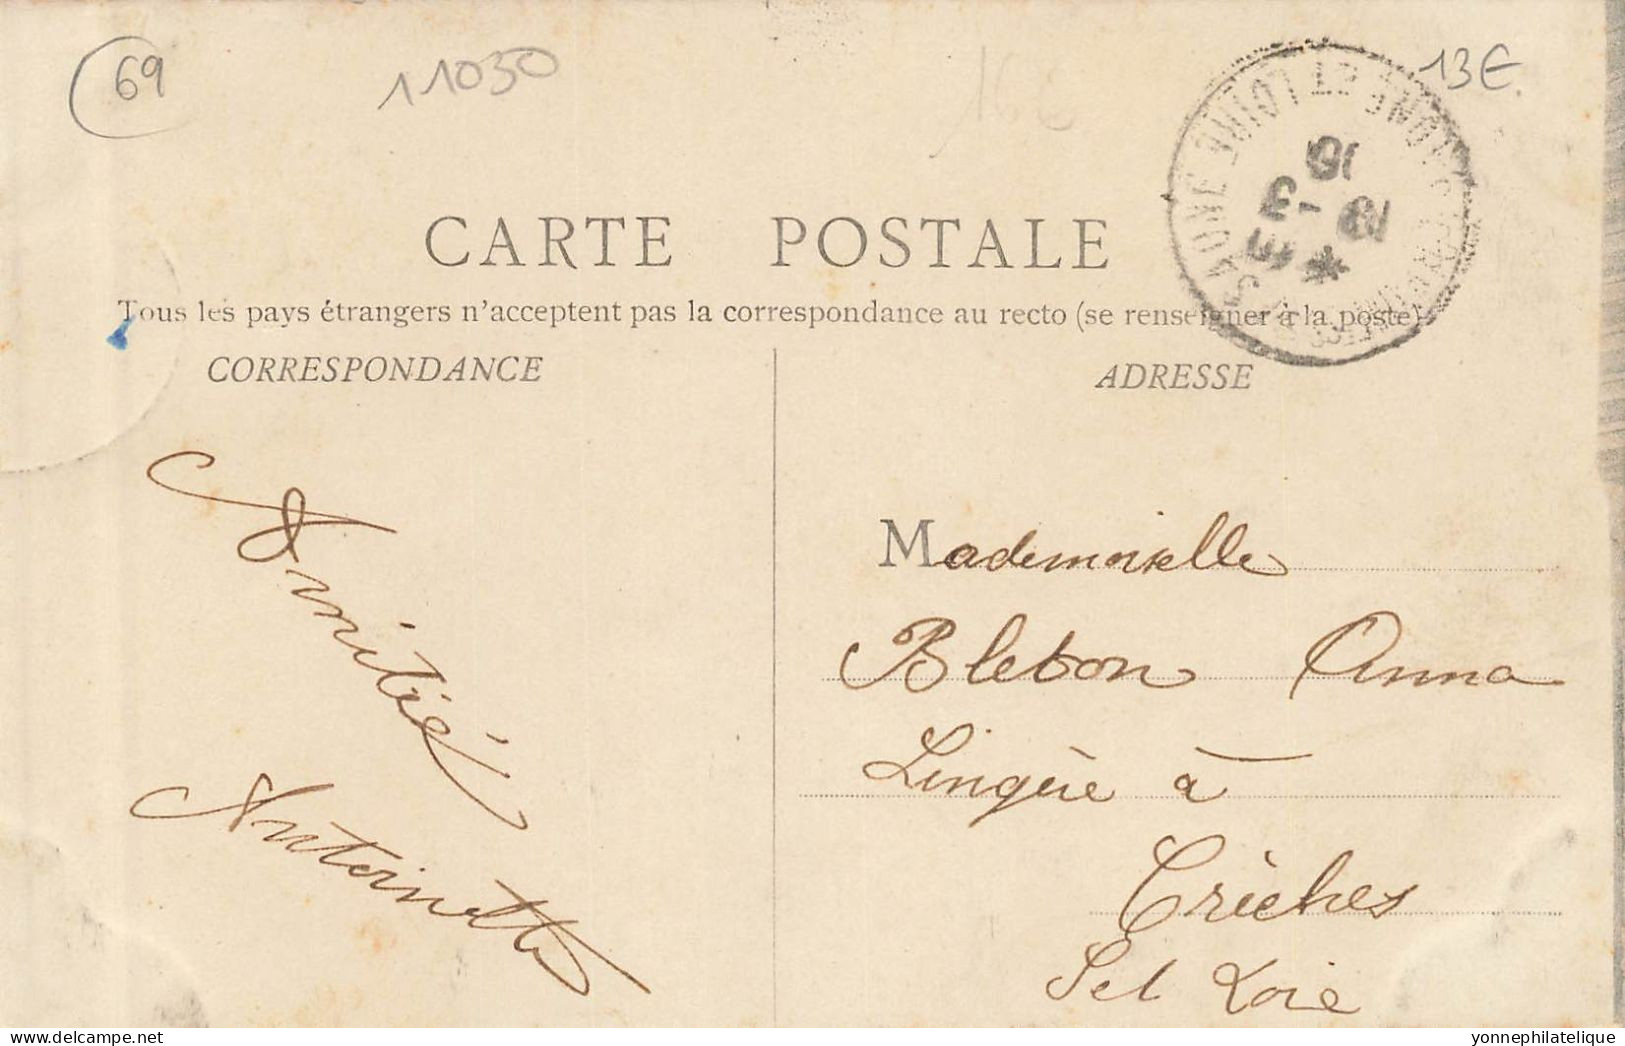 69
11030
16€
13€.
SAONE ET LOIRE
CARTE POSTALE
Tous les pays étrangers n'acceptent pas la correspondance au recto (se renseigner à la poste)
CORRESPONDANCE
ADRESSE
Amitié
Antoinette
Mademoiselle
Blebon Anna
Lingère à
Crèches
S et Loire
yonnephilatelique